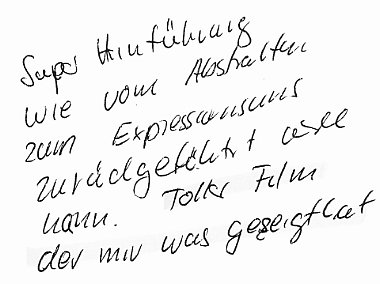 Super Hinführung
wie vom Abstrakten
zum Expressionismus
zurückgeführt werden
kann. Toller Film
der mir was gezeigt hat